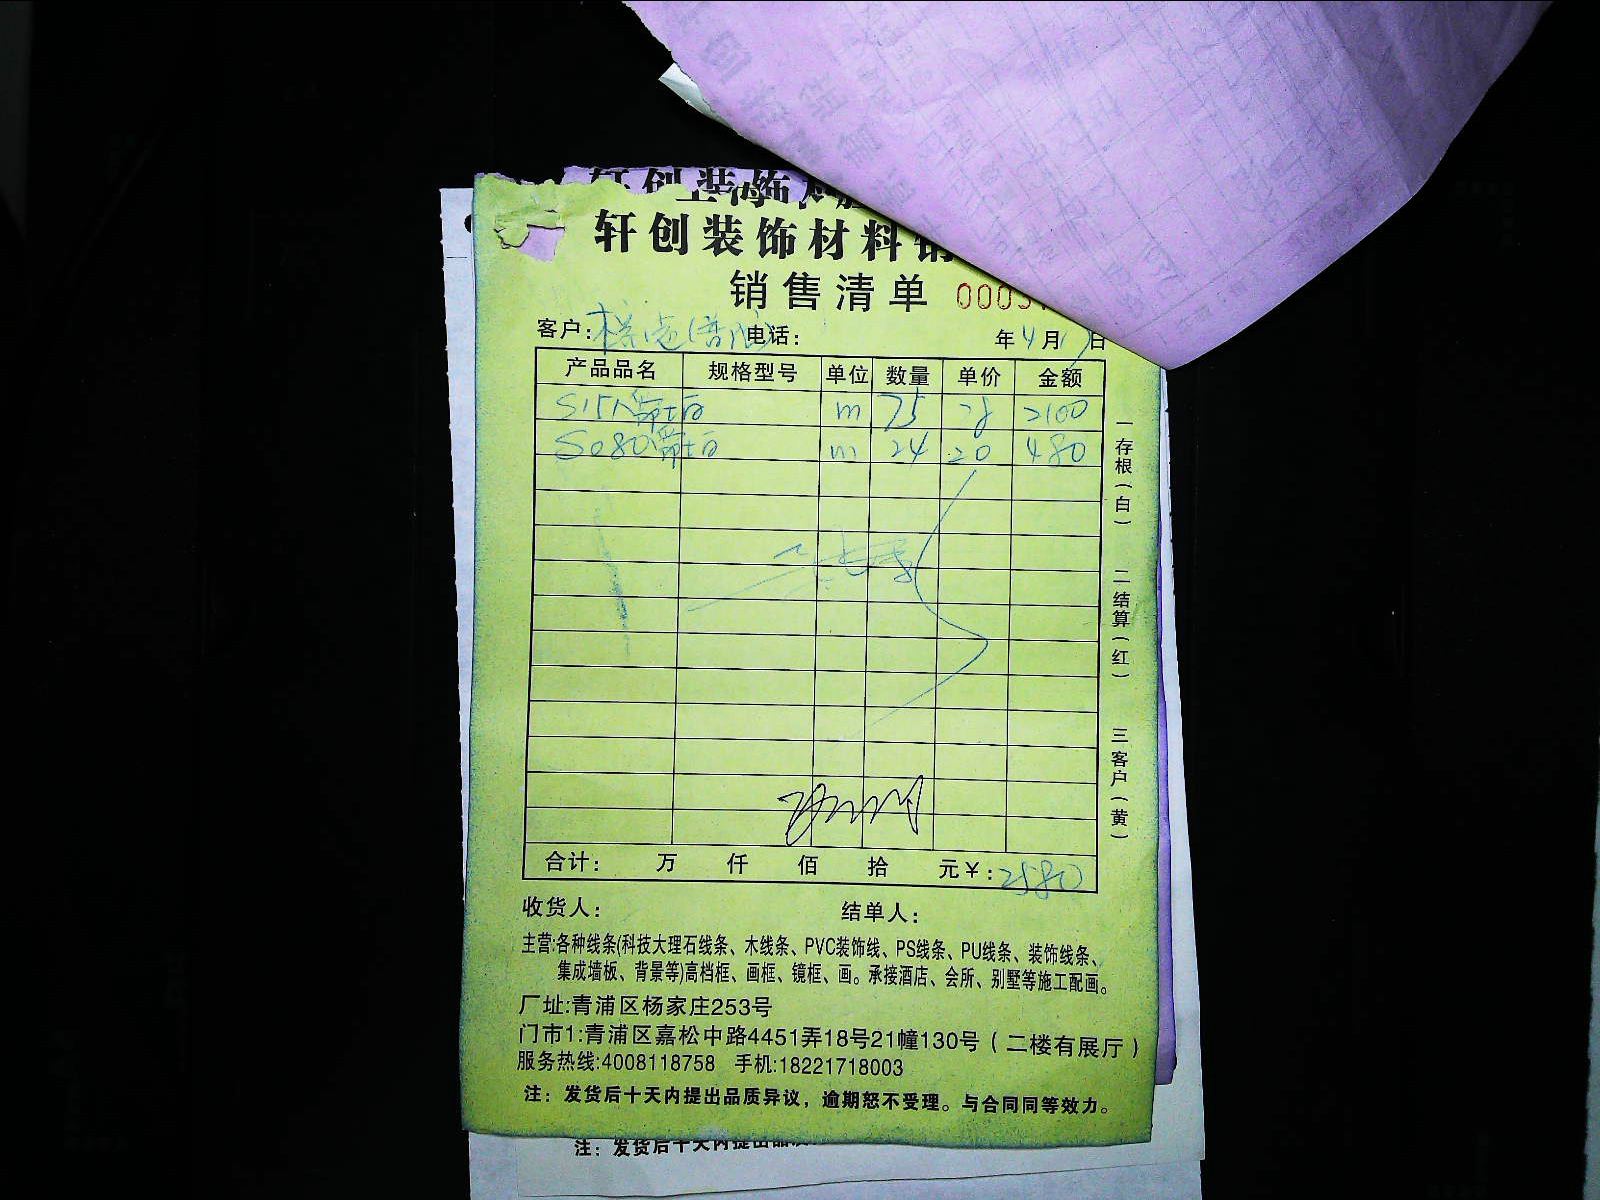 轩创装饰材料
轩创装饰材料销
销售清单 0003
客户: 电话: 年4月 日
产品品名 规格型号 单位 数量 单价 金额
m 75 28 2100
S080爵士白 m 24 20 480
一存根(白)
二结算(红)
三客户(黄)
合计: 万 仟 佰 拾 元¥:2580
收货人: 结单人:
主营:各种线条(科技大理石线条、木线条、PVC装饰线、PS线条、PU线条、装饰线条、
集成墙板、背景等)高档框、画框、镜框、画。承接酒店、会所、别墅等施工配画。
厂址:青浦区杨家庄253号
门市1:青浦区嘉松中路4451弄18号21幢130号(二楼有展厅)
服务热线:4008118758 手机:18221718003
注:发货后十天内提出品质异议,逾期恕不受理。与合同同等效力。
注:发货后十天内提出品质